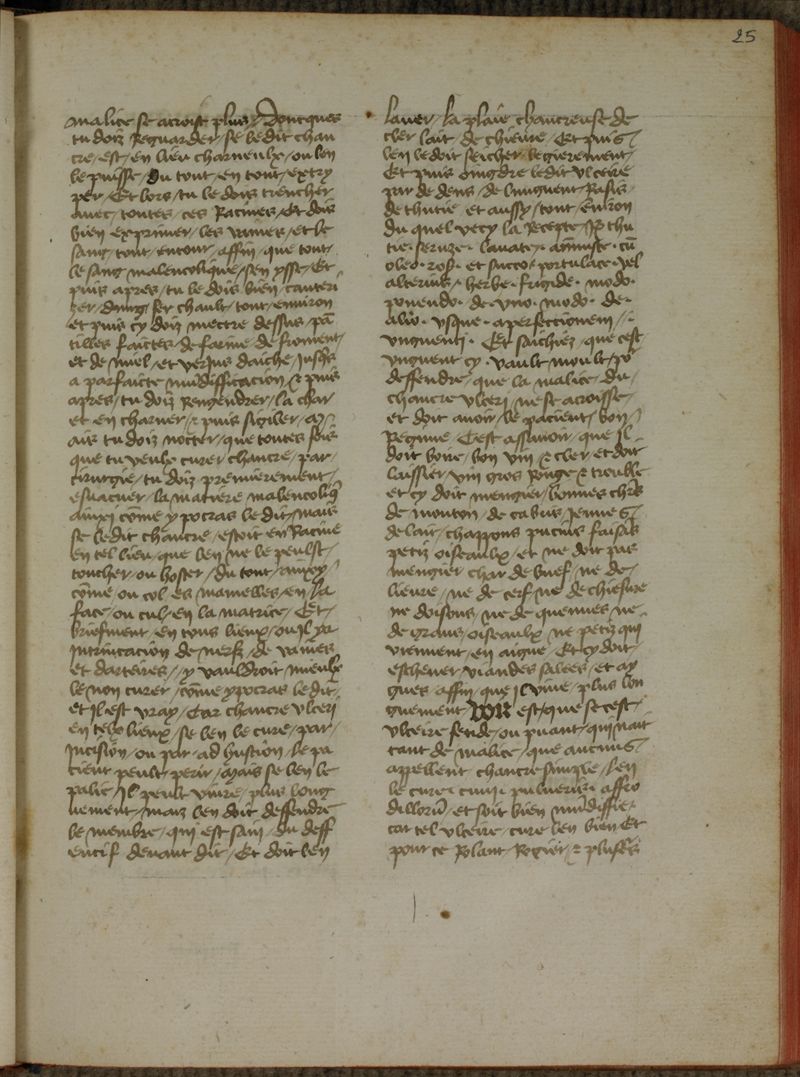 25
malice se acroist plus / Doncques
tu doiz Reguarder / se ledit chan
cre / est / en lieu charneulx / ou len
le puisse / Du tout / en tout / extir
per / Et lors / tu le dois trencher
avec / toutes / ces Racines / Et dois
bien exprimer / les vaines / et le
sang / tout / entour / affin / que tout /
le sang malencolique / sen ysse / Et
puis apres / tu le dois bien / cauteri
zer / dung fer chault / tout / environ
et puis cy doiz mectre dessus / pā
tilles faictes / de farine de froment /
et de miel / et verjus daiche / Jusq̄s
a parfaicte mūdifficacion / & puis
apres / tu doiz Rengendrer / la char
et en charner / & puis sigiller / M
ais tu doiz nocter / que toutes fois
que tu veulx curer chancre / par /
cirurgie / tu doiz premierement /
esvacuer / la matiere malencoliq̄
ainxi cōme ypocras le dit / mais
se ledit chancre / estoit en Racine
en tel lieu / que len ne le peulst /
toucher / ou hoster / du tout / ainxy /
cōme ou col / es mamelles / en la
face / ou cul / en la matrice / Et /
briefment / en tous lieux / ou il ya
Intrincacion de nerfz / de vaines
et darteires / y vauldroit mieulx
le non curer / cōme ypocras le dit /
et il est vray / Car chancre ulceri
en telz lieux / se len le cure / par /
Incision / ou par / ad hustion / Le pa
cient peult perir / Mais se len le
palie / Il peult vivre / plus long
uement / maiz len doit deffendre
le membre / qui est sain / du deff
encif devant dit / Et doit len
laver / la plaie chancreuse de
cler lait / de chievre / Et puis /
len le doit seicher / legierement /
Et puis oingdre ledit ulcere
par de dens / de lunguent / Rasis /
de thutie et aussy / tout / environ
du quel vecy la Recepte / Rp̄ thu
tie / seruze · lavate · / amministre · cū
oleo · ros · et succo · portulace · vel
alterius / herbe · frigide · modo ·
ponendo · de · uno · modo · de ·
alio · usque · a perfectionem / ·
unguenti · Et saichiez / que cest
unguent cy · vault moult / po᷑
deffendre / que la malice / du /
chancre ulceri / ne st acroisse /
et doit avoir / le pacient / bon /
Regime Cest assavoir / que Il /
doit boire / bon vin & cler et doit
laissier / vin gros Rouge & trouble
et cy doit mengier / bonnes chr̄s
de mouton / de cabus jeunes /
de lait / chappons pucins faisās
petiz oiseaulx / et ne doit pas
mengier char de buef / ne de /
lievre / ne de cerf / ne de chiefvre
ne doisons / ne de quennes / ne
de grans / oiseaulx / ne petiz qui
viennent / en aigue / Et cy doit /
eschever / viandes salees / et ay
gues / affin / que Il vive / plus lon
guement est / que se cest /
ulcere fetide / ou puant / qui nait
tant de malice / que aucuns /
appellent chancre simple / len
le cure / cum · pulveriz · affro
dillorū / et soit bien mūdiffie /
car tel ulcere / cure len bien Et
pour ce Rolant / Rogier / & pluse᷑s